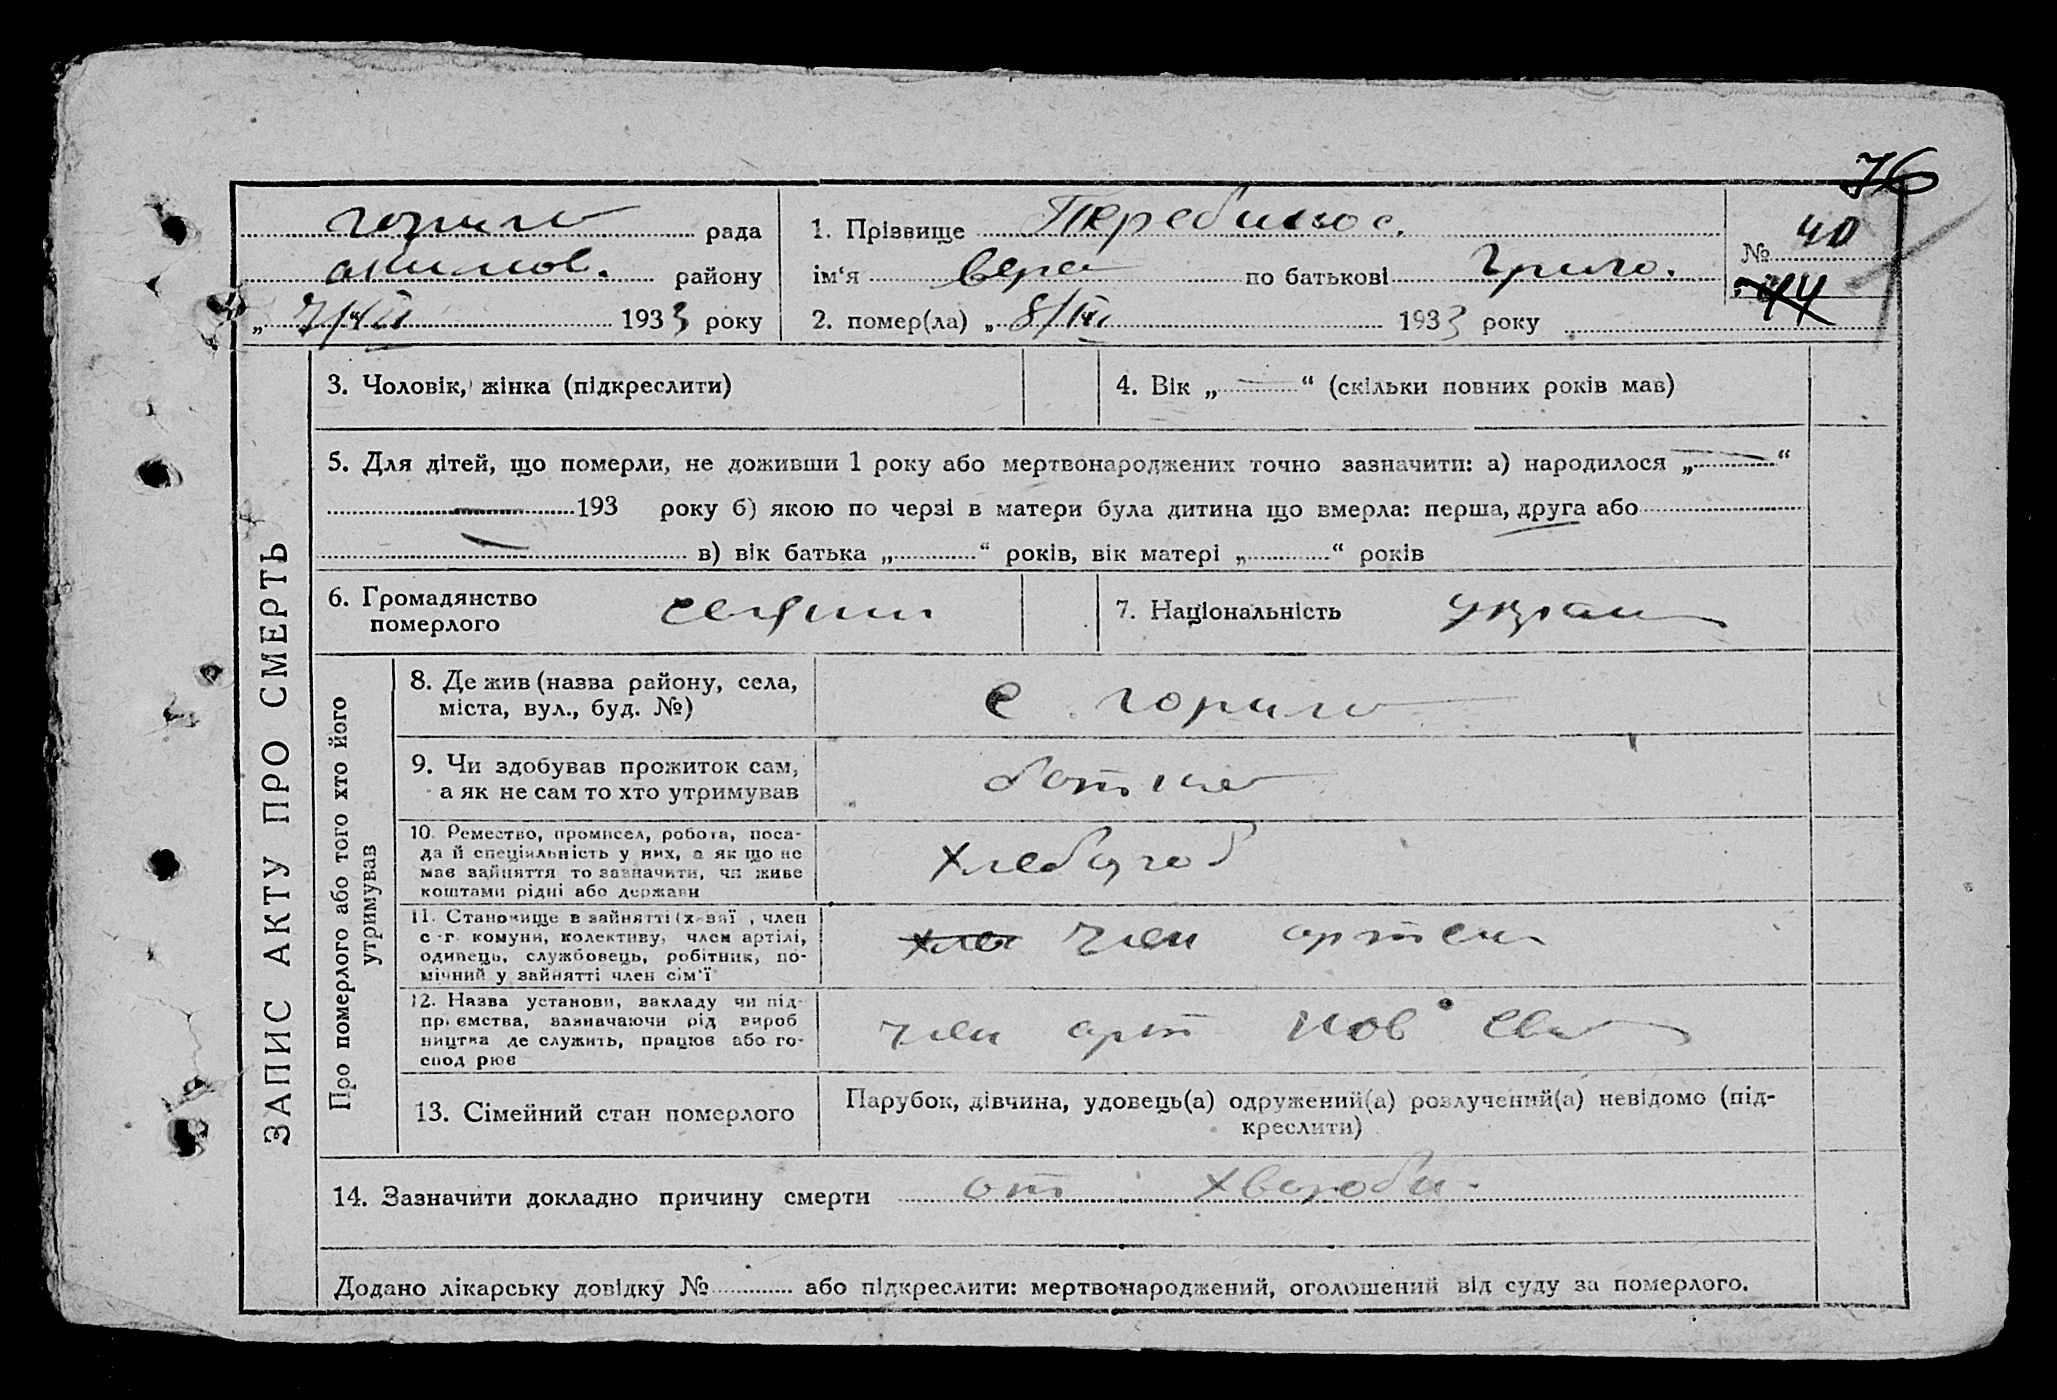 76
горили рада
акимов. району
„ 7/VII 1933 року
1. Прізвище Теребилюс.
ім‘я Вера по батькові Григо.
2. помер(ла) „ 8/III 1933 року
№ 40
44
ЗАПИС АКТУ ПРО СМЕРТЬ
3. Чоловік, жінка (підкреслити)
4. Вік „ “ (скільки повних років мав)
5. Для дітей, що померли, не доживши 1 року або мертвонароджених точно зазначити: а) народилося „ “
193 року б) якою по черзі в матери була дитина що вмерла: перша, друга або
в) вік батька „ “ років, вік матері „ “ років
6. Громадянство
померлого
7. Національність украин
Про померлого або того хто його
утримував
8. Де жив (назва району, села,
міста, вул., буд. №)
с. горили
9. Чи здобував прожиток сам,
а як не сам то хто утримував
10. Ремество, промисел, робота, поса-
да й спеціяльність у них, а як що не
має зайняття то зазначити, чи живе
коштами рідні або держави
хлебороб
11. Становище в зайнятті (х-ваї , член
с -г. комуни, колективу, член артілі,
одинець, службовець, робітник, по-
мічний у зайнятті член сім‘ї
член артели
12. Назва установи, закладу чи під-
приємства, зазначаючи рід вироб
ництва де служить, працює або го-
спод рює
член арт нов
13. Сімейний стан померлого
Парубок, дівчина, удовець(а) одружений(а) розлучений(а) невідомо (під-
креслити)
14. Зазначити докладно причину смерти от хвороби.
Додано лікарську довідку № або підкреслити: мертвонароджений, оголошений від суду за померлого.